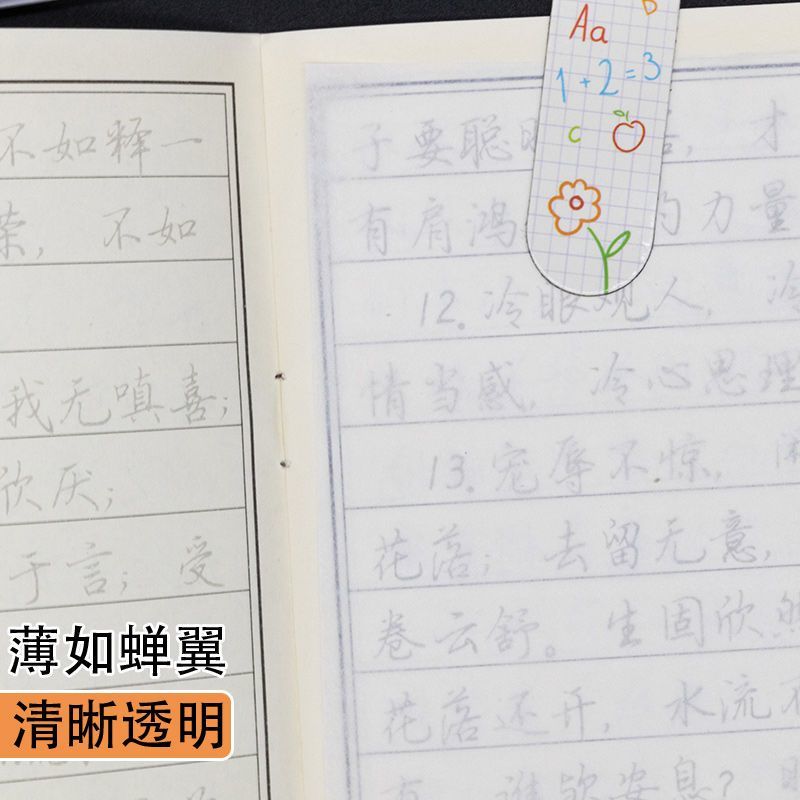 不如释一
荣，不如
我无嗔喜；
欣厌；
于言；受
Aa
B
1+2=3
c
子要聪明，才
有肩鸿的力量
12.冷眼观人，冷
情当感，冷心思理
13.宠辱不惊，闲
花落；去留无意，
卷云舒。生固欣然
花落还开，水流不
有，谁欤安息？
薄如蝉翼
清晰透明